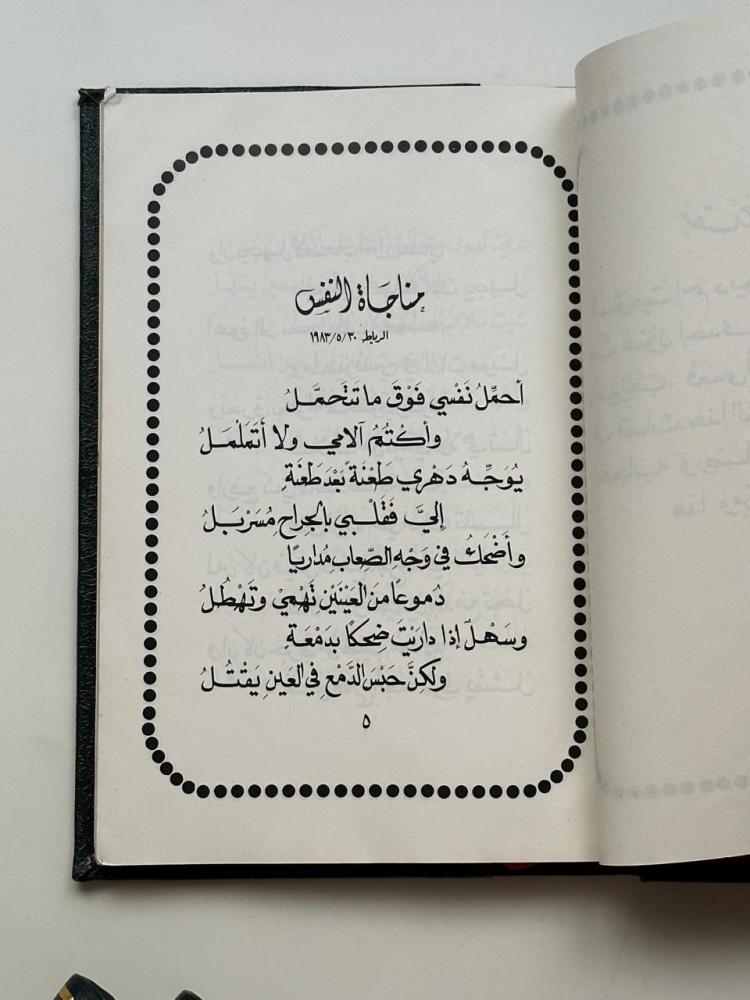 مناجاة النفس
الرباط ١٩٨٣/٥/٣٠
أحمِّلُ نَفْسي فَوْقَ ما تتَحمَّلُ
وأكتُمُ آلامي ولا أتَملْمَلُ
يُوَجِّهُ دَهْري طَعْنَةً بَعْدَ طَعْنَةٍ
إليَّ فَقَلْبي بالجِراحِ مُسَرْبَلُ
وأضْحَكُ في وَجْهِ الصِّعابِ مُداريًا
دُموعًا مِنَ العَيْنَيْنِ تَهْمي وتَهْطُلُ
وسَهْلٌ إذا دارَيْتَ ضِحكًا بدَمْعَةٍ
ولكِنَّ حَبْسَ الدَّمْعِ في العَينِ يَقْتُلُ
٥